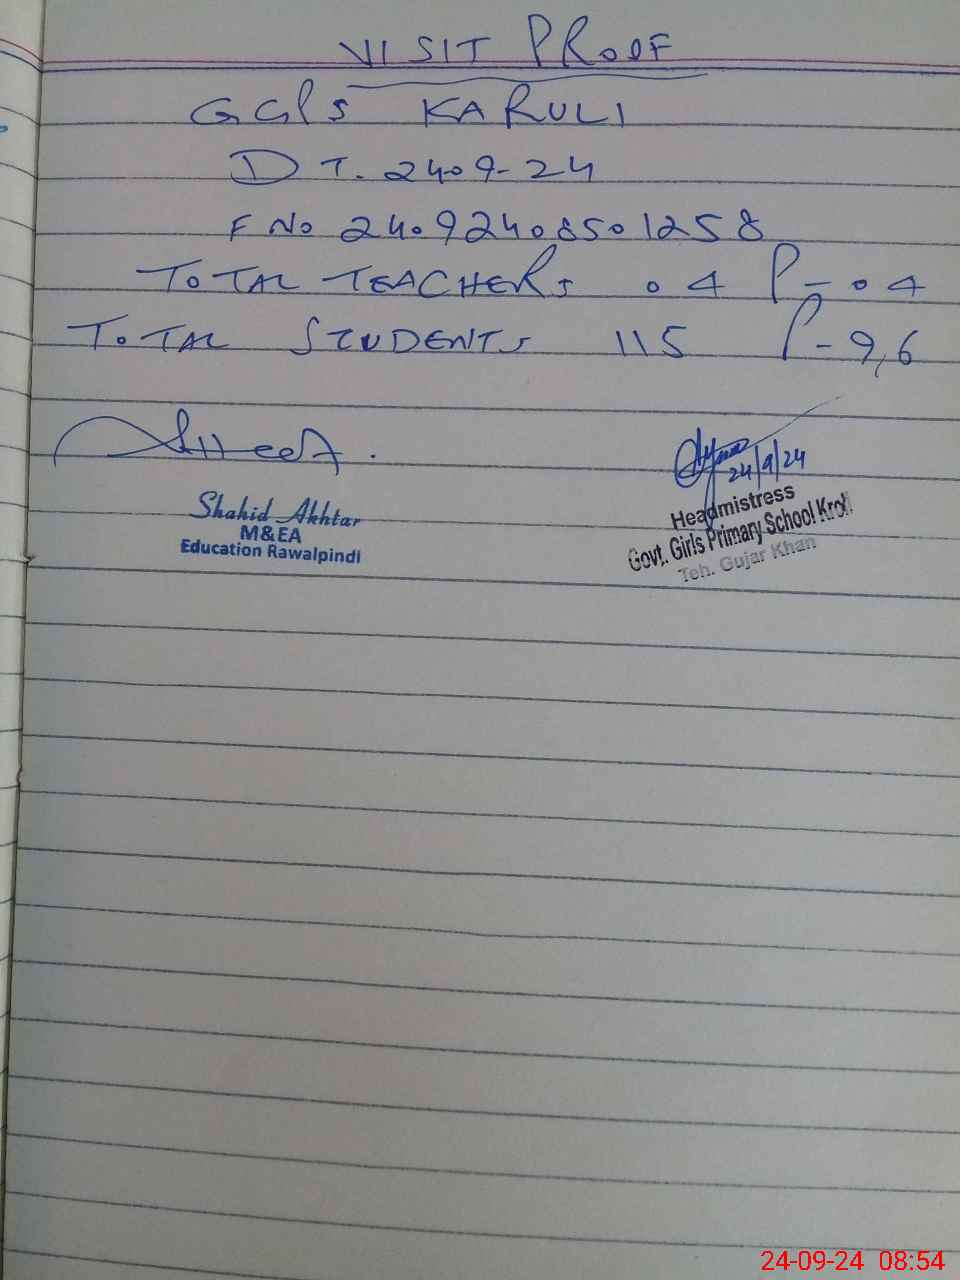 VISIT PROOF
GGPS KARULI
DT. 2409-24
F No 24092408501258
TOTAL TEACHERS 04 P-04
TOTAL STUDENTS 115 P-96
24/9/24
Shahid Akhtar
M&EA
Education Rawalpindi
Headmistress
Govt. Girls Primary School Kroli
Teh. Gujar Khan
24-09-24 08:54